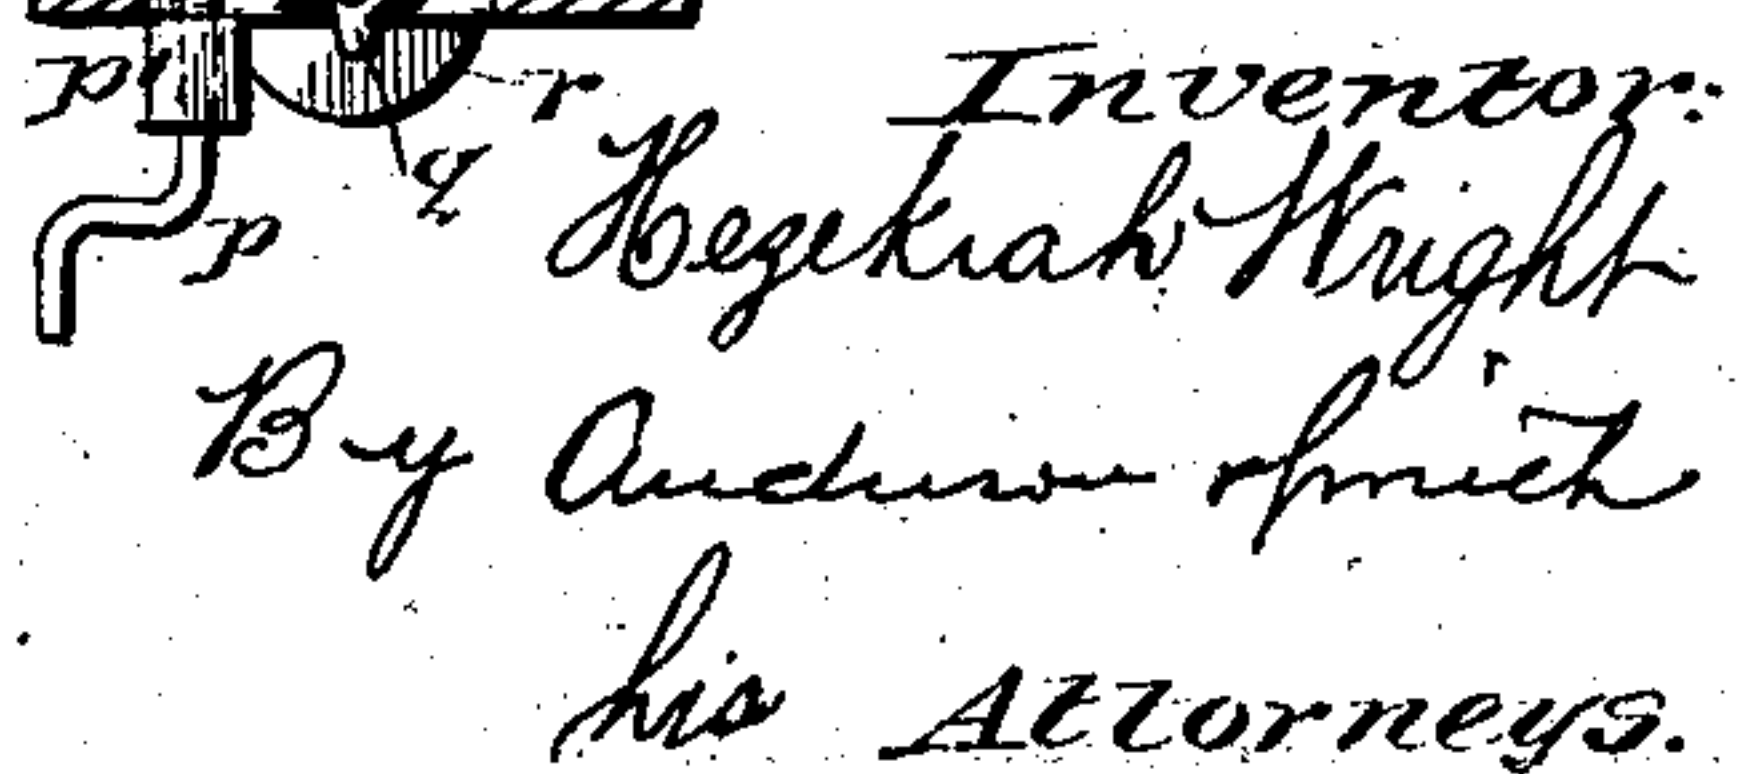 p r Inventor:
q Hezekiah Wright
p
By Anderson Smith
his Attorneys.